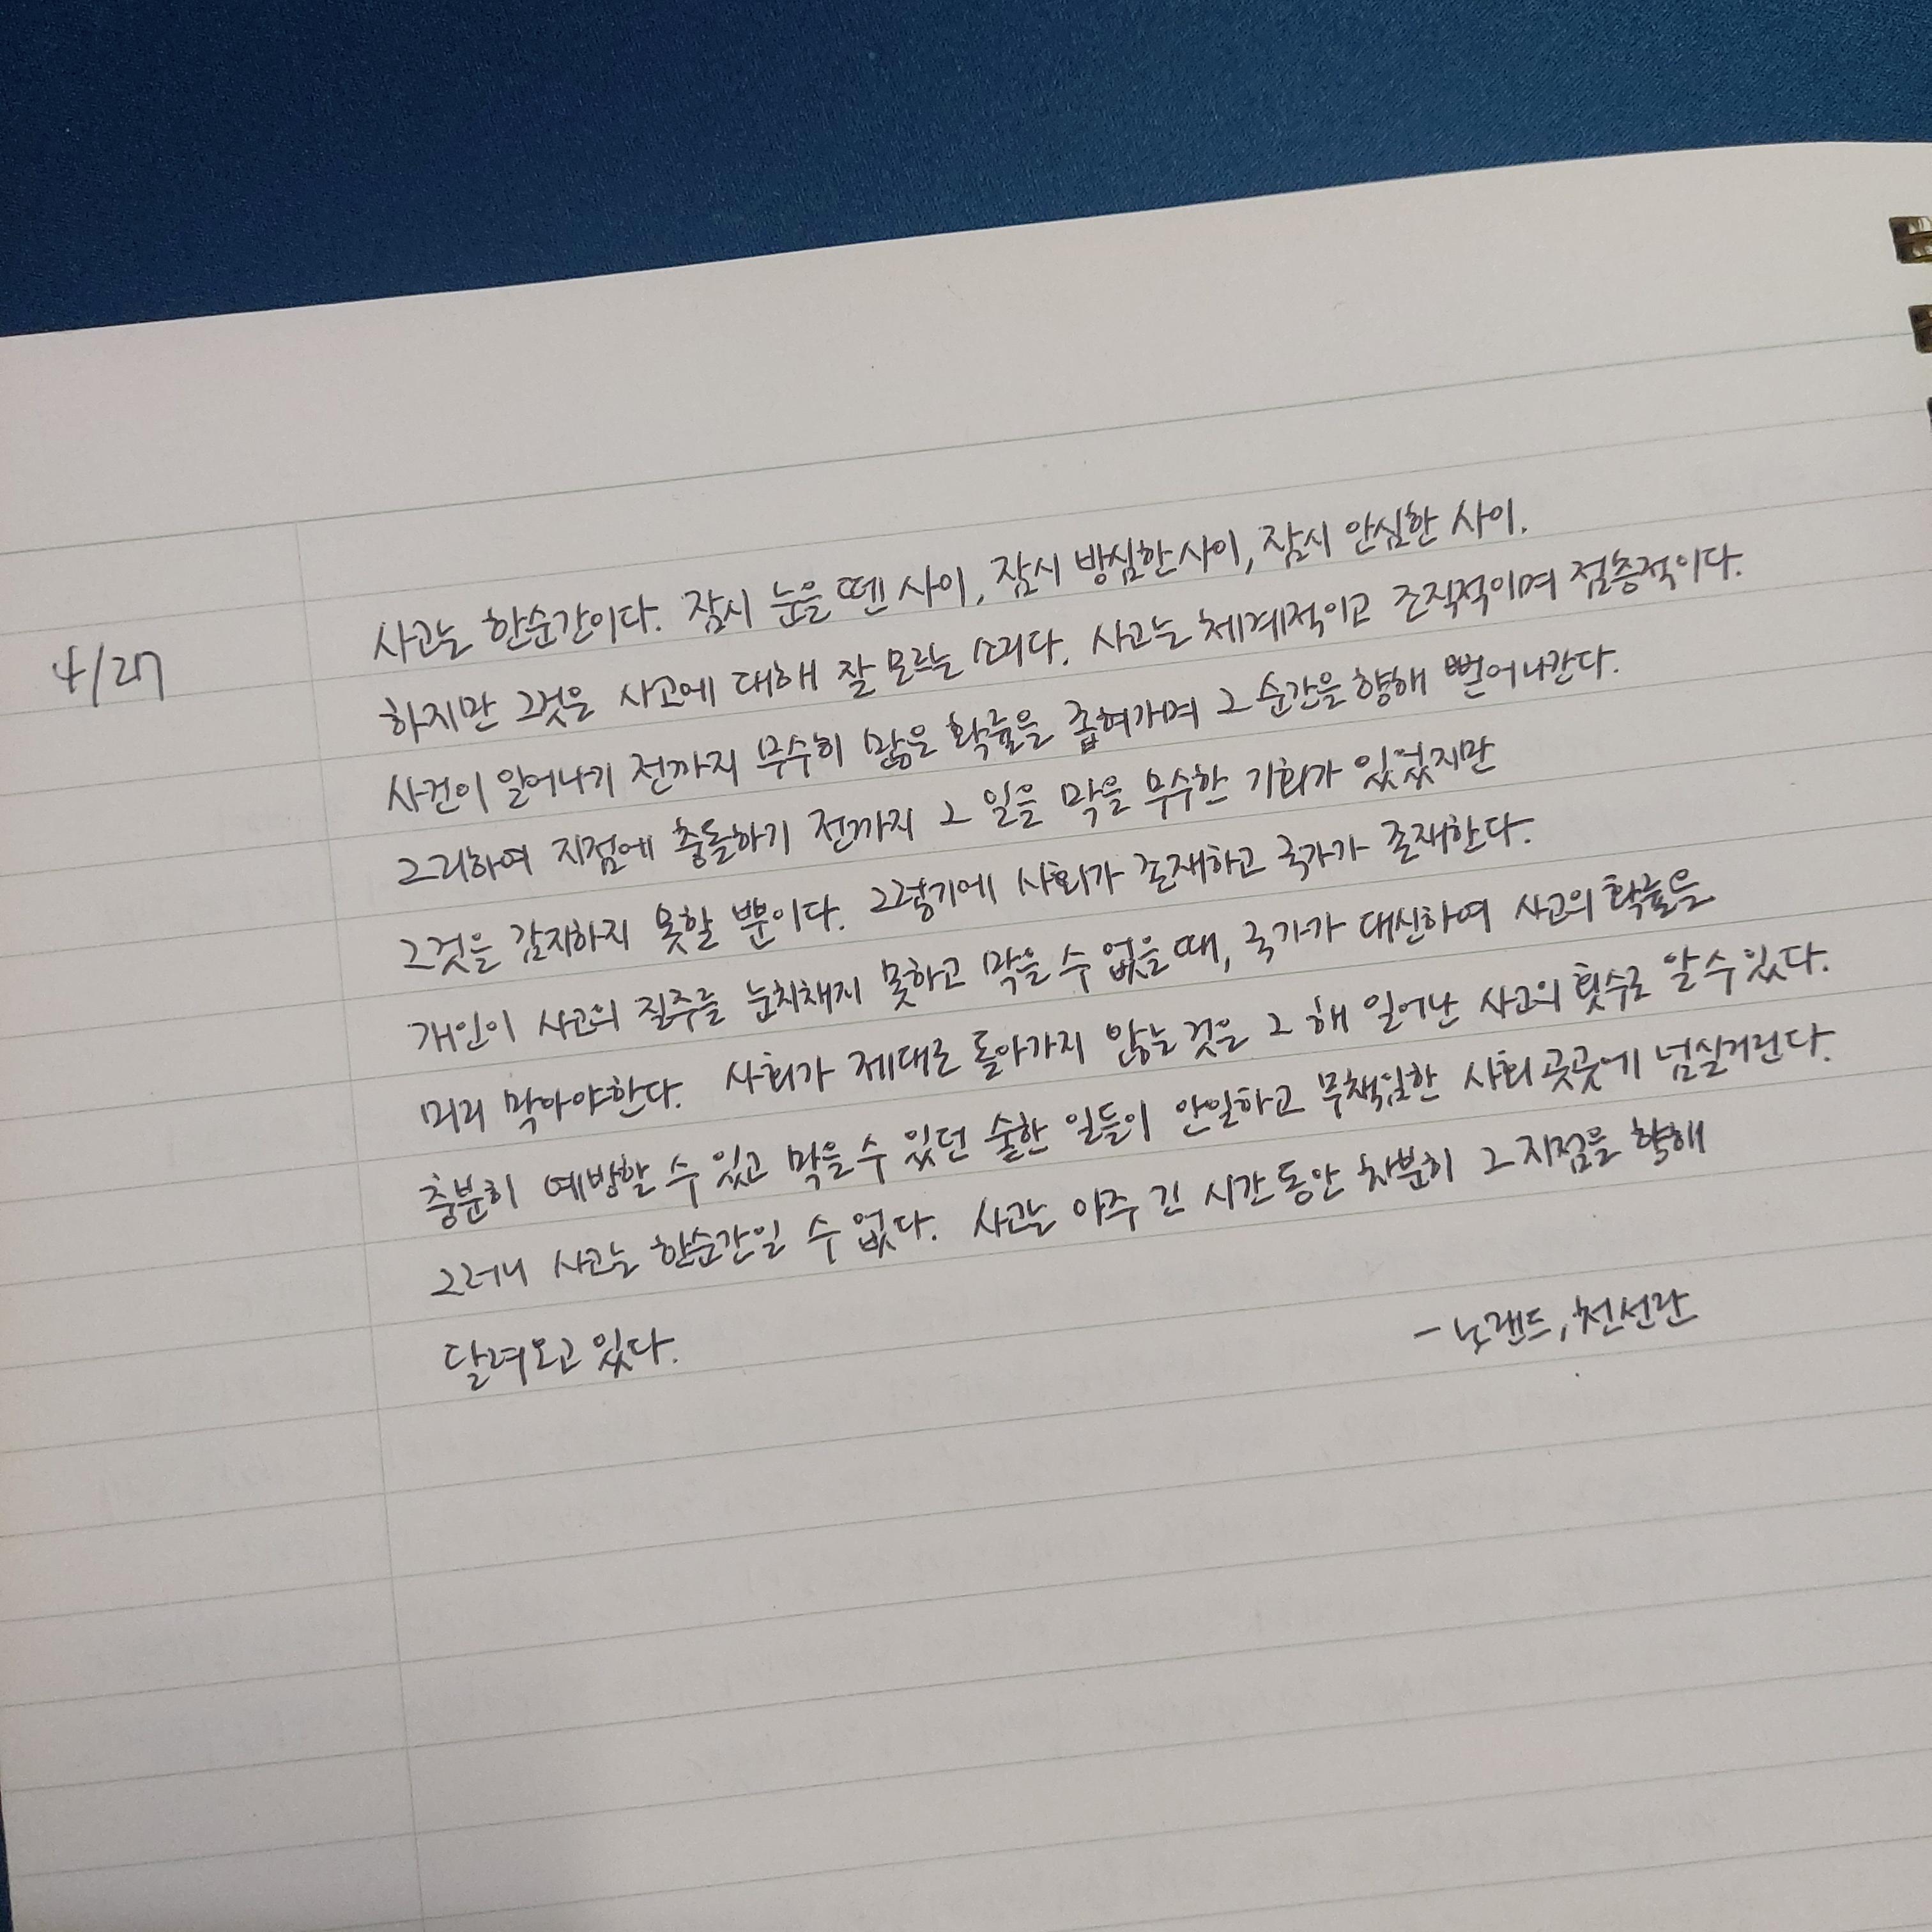 4/27
사고는 한순간이다. 잠시 눈을 뗀 사이, 잠시 방심한 사이, 잠시 안심한 사이.
하지만 그것은 사고에 대해 잘 모르는 소리다. 사고는 체계적이고 조직적이며 점층적이다.
사건이 일어나기 전까지 무수히 많은 확률을 좁혀가며 그 순간을 향해 뻗어나간다.
그리하여 지점에 충돌하기 전까지 그 일을 막을 무수한 기회가 있었지만
그것을 감지하지 못할 뿐이다. 그렇기에 사회가 존재하고 국가가 존재한다.
개인이 사고의 질주를 눈치채지 못하고 막을 수 없을 때, 국가가 대신하여 사고의 확률을
미리 막아야한다. 사회가 제대로 돌아가지 않는 것은 그 해 일어난 사고의 횟수로 알 수 있다.
충분히 예방할 수 있고 막을 수 있던 숱한 일들이 안일하고 무책임한 사회 곳곳에 넘실거린다.
그러니 사고는 한순간일 수 없다. 사고는 아주 긴 시간동안 차분히 그 지점을 향해
달려오고 있다.
- 노랜드, 천선란